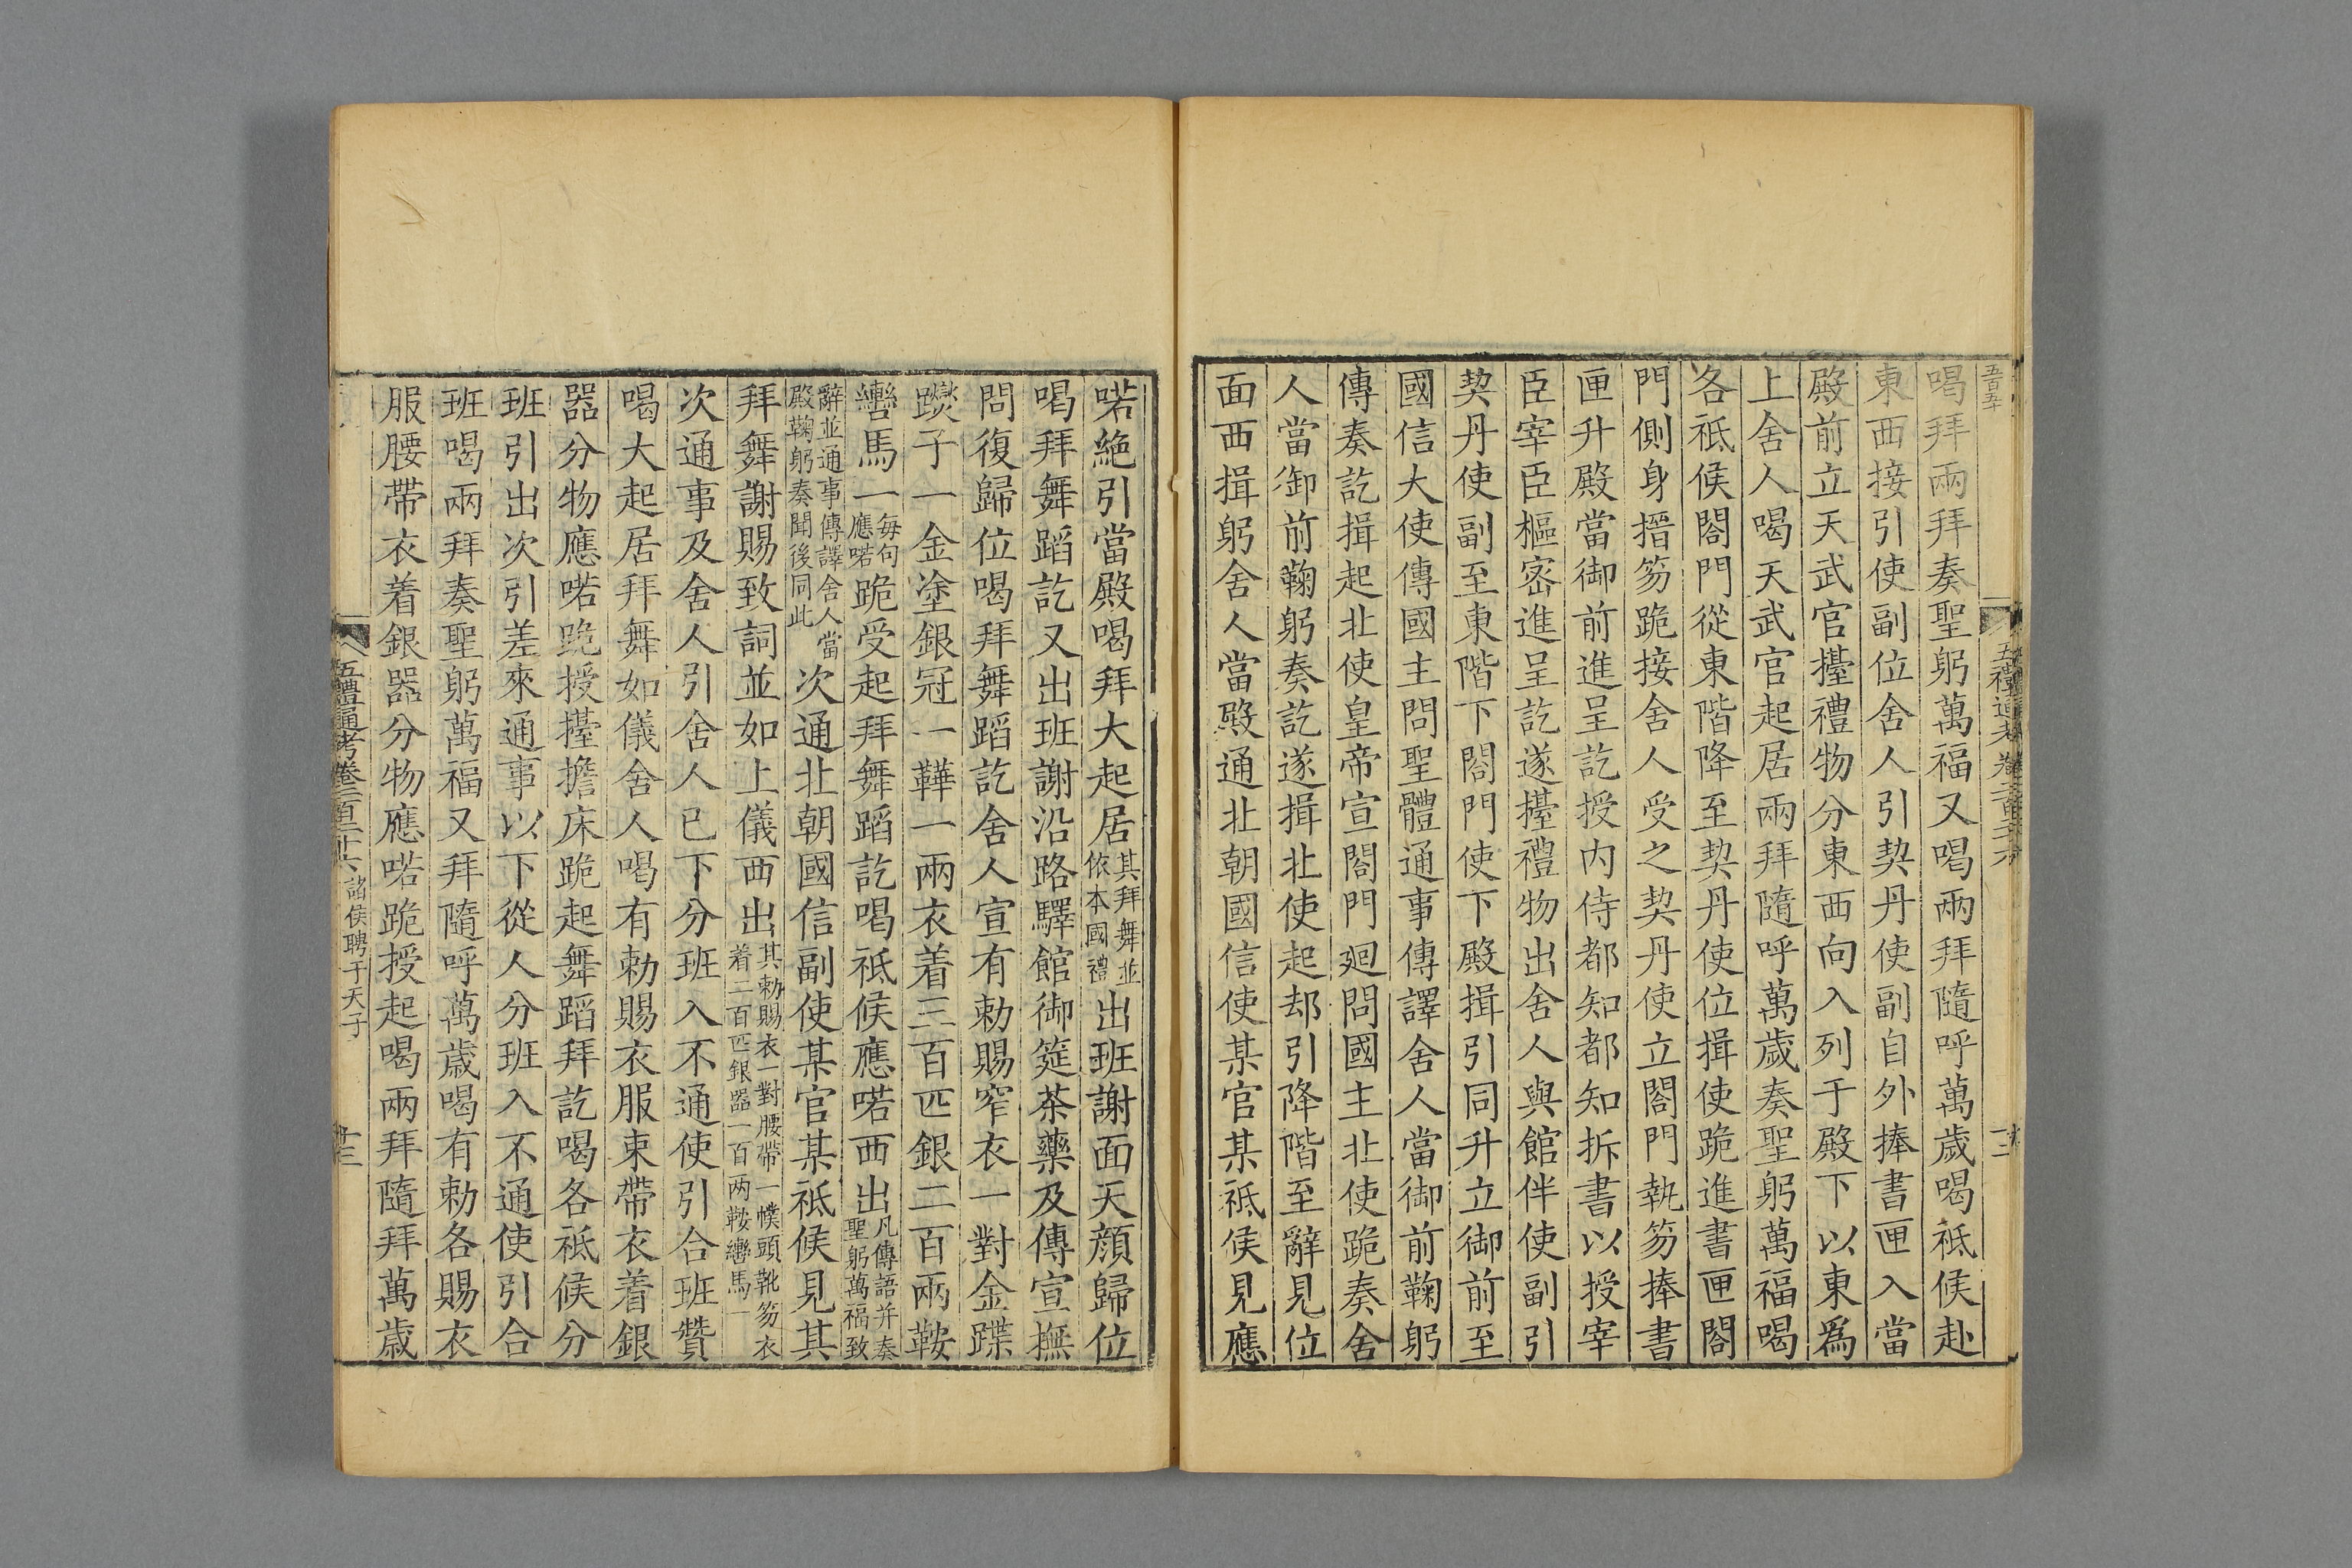 五百五十
五禮通考卷二百二十六
十二
喝拜兩拜奏聖躬萬福又喝兩拜隨呼萬歲喝祗候赴
東西接引使副位舍人引契丹使副自外捧書匣入當
殿前立天武官擡禮物分東西向入列于殿下以東爲
上舍人喝天武官起居兩拜隨呼萬歲奏聖躬萬福喝
各祗候閤門從東階降至契丹使位揖使跪進書匣閤
門側身搢笏跪接舍人受之契丹使立閤門執笏捧書
匣升殿當御前進呈訖授内侍都知都知拆書以授宰
臣宰臣樞密進呈訖遂擡禮物出舍人與館伴使副引
契丹使副至東階下閤門使下殿揖引同升立御前至
國信大使傳國主問聖體通事傳譯舍人當御前鞠躬
傳奏訖揖起北使皇帝宣閤門廻問國主北使跪奏舍
人當御前鞠躬奏訖遂揖北使起却引降階至辭見位
面西揖躬舍人當殿通北朝國信使某官某祗候見應
喏絶引當殿喝拜大起居其拜舞並依本國禮出班謝面天顔歸位
喝拜舞蹈訖又出班謝沿路驛館御筵茶藥及傳宣撫
問復歸位喝拜舞蹈訖舍人宣有勅賜窄衣一對金蹀
躞子一金塗銀冠一鞾一兩衣着三百匹銀二百兩鞍
轡馬一每句應喏跪受起拜舞蹈訖喝祗候應喏西出凡傳語并奏聖躬萬福致
辭並通事傳譯舍人當殿鞠躬奏聞後同此次通北朝國信副使某官某祗候見其
拜舞謝賜致詞並如上儀西出其勅賜衣一對腰帶一幞頭靴笏衣着二百匹銀器一百两鞍轡馬一
次通事及舍人引舍人已下分班入不通使引合班贊
喝大起居拜舞如儀舍人喝有勅賜衣服束帶衣着銀
器分物應喏跪授擡擔床跪起舞蹈拜訖喝各祗候分
班引出次引差來通事以下從人分班入不通使引合
班喝兩拜奏聖躬萬福又拜隨呼萬歲喝有勅各賜衣
服腰帶衣着銀器分物應喏跪授起喝兩拜隨拜萬歲
五禮通考卷二百二十六 諸侯聘于天子
十三